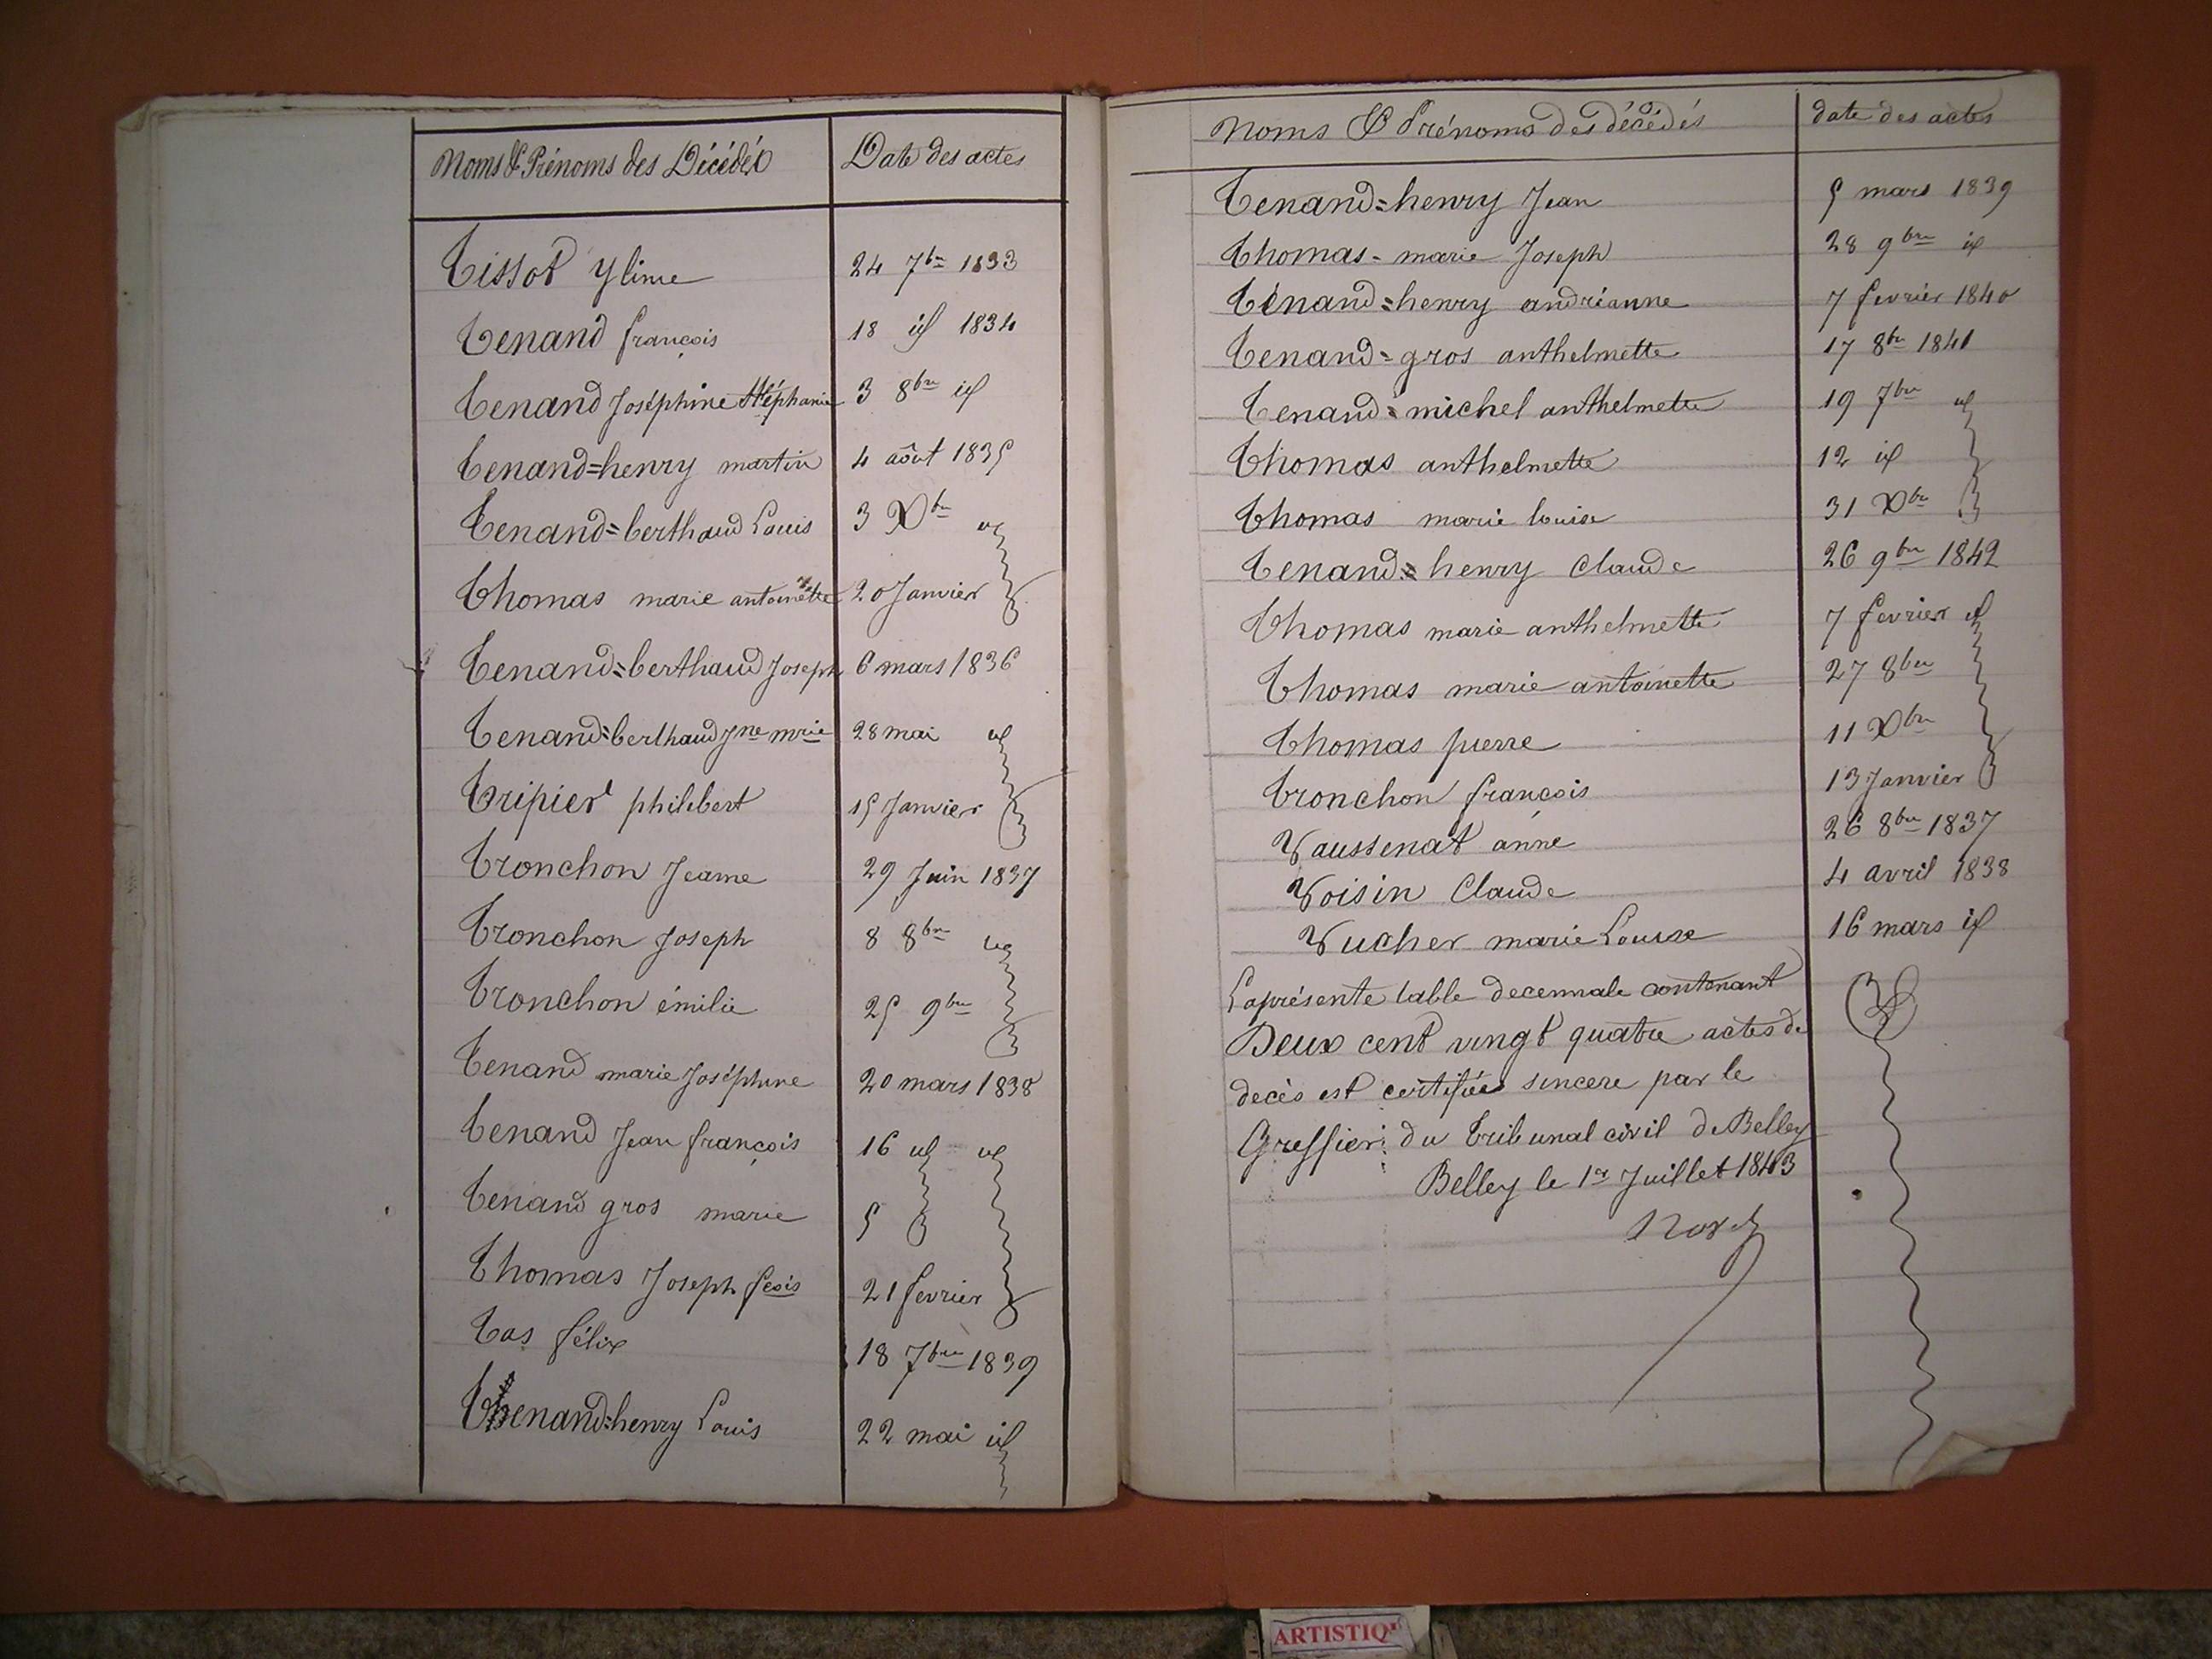 Noms & Prénoms des Décédés Date des actes
Tissot ylime 24 7bre 1833
Tenand françois 18 id 1834
Tenand Joséphine Stéphanie 3 8bre id
Tenand=henry martin 4 aôut 1835
Tenand=berthaud Louis 3 Xbre id
Thomas marie antoinette 20 Janvier
Tenand=berthaud Joseph 6 mars 1836
Tenand=berthaud Jne mrie 28 mai id
Tripier philibert 15 Janvier
Tronchon Jeanne 29 Juin 1837
Tronchon Joseph 8 8bre id
Tronchon émilie 25 9bre
Tenand marie Joséphine 20 mars 1838
Tenand Jean françois 16 id id
Tenand gros marie 5
Thomas Joseph fcois 21 fevrier
Tas félix 18 7bre 1839
Thenand=henry Louis 22 mai id
Noms & Prénoms des décédés date des actes
Tenand=henry Jean 5 mars 1839
Thomas-marie Joseph 28 9bre id
Tenand=henry andrianne 7 fevrier 1840
Tenand=gros anthelmette 17 8bre 1841
Tenand=michel anthelmette 19 7bre id
Thomas anthelmette 12 id
Thomas marie louise 31 Xbre
Tenand=henry Claude 26 9bre 1842
Thomas marie anthelmette 7 fevrier id
Thomas marie antoinette 27 8bre
Thomas pierre 11 Xbre
Tronchon françois 13 Janvier
Vaussenat anne 26 8bre 1837
Voisin Claude 4 avril 1838
Vucher marie Louise 16 mars id
La présente table decennale contenant
Deux cent vingt quatre actes de
decès est certifiée sincere par le
Greffier du tribunal civil de Belley
Belley le 1er Juillet 1843
ARTISTIQ